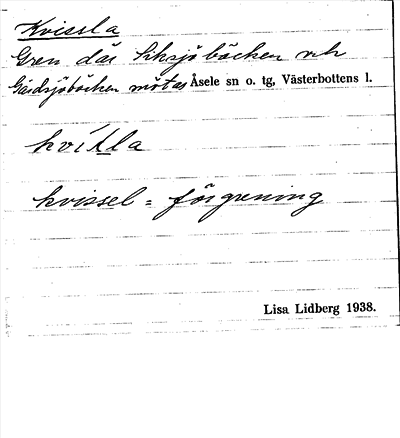 Kvissla
Gren där Iiksjöbäcken och
Gärdsjöbäcken mötas Åsele sn o. tg, Västerbottens l.
kvissel = förgrening
Lisa Lidberg 1938.